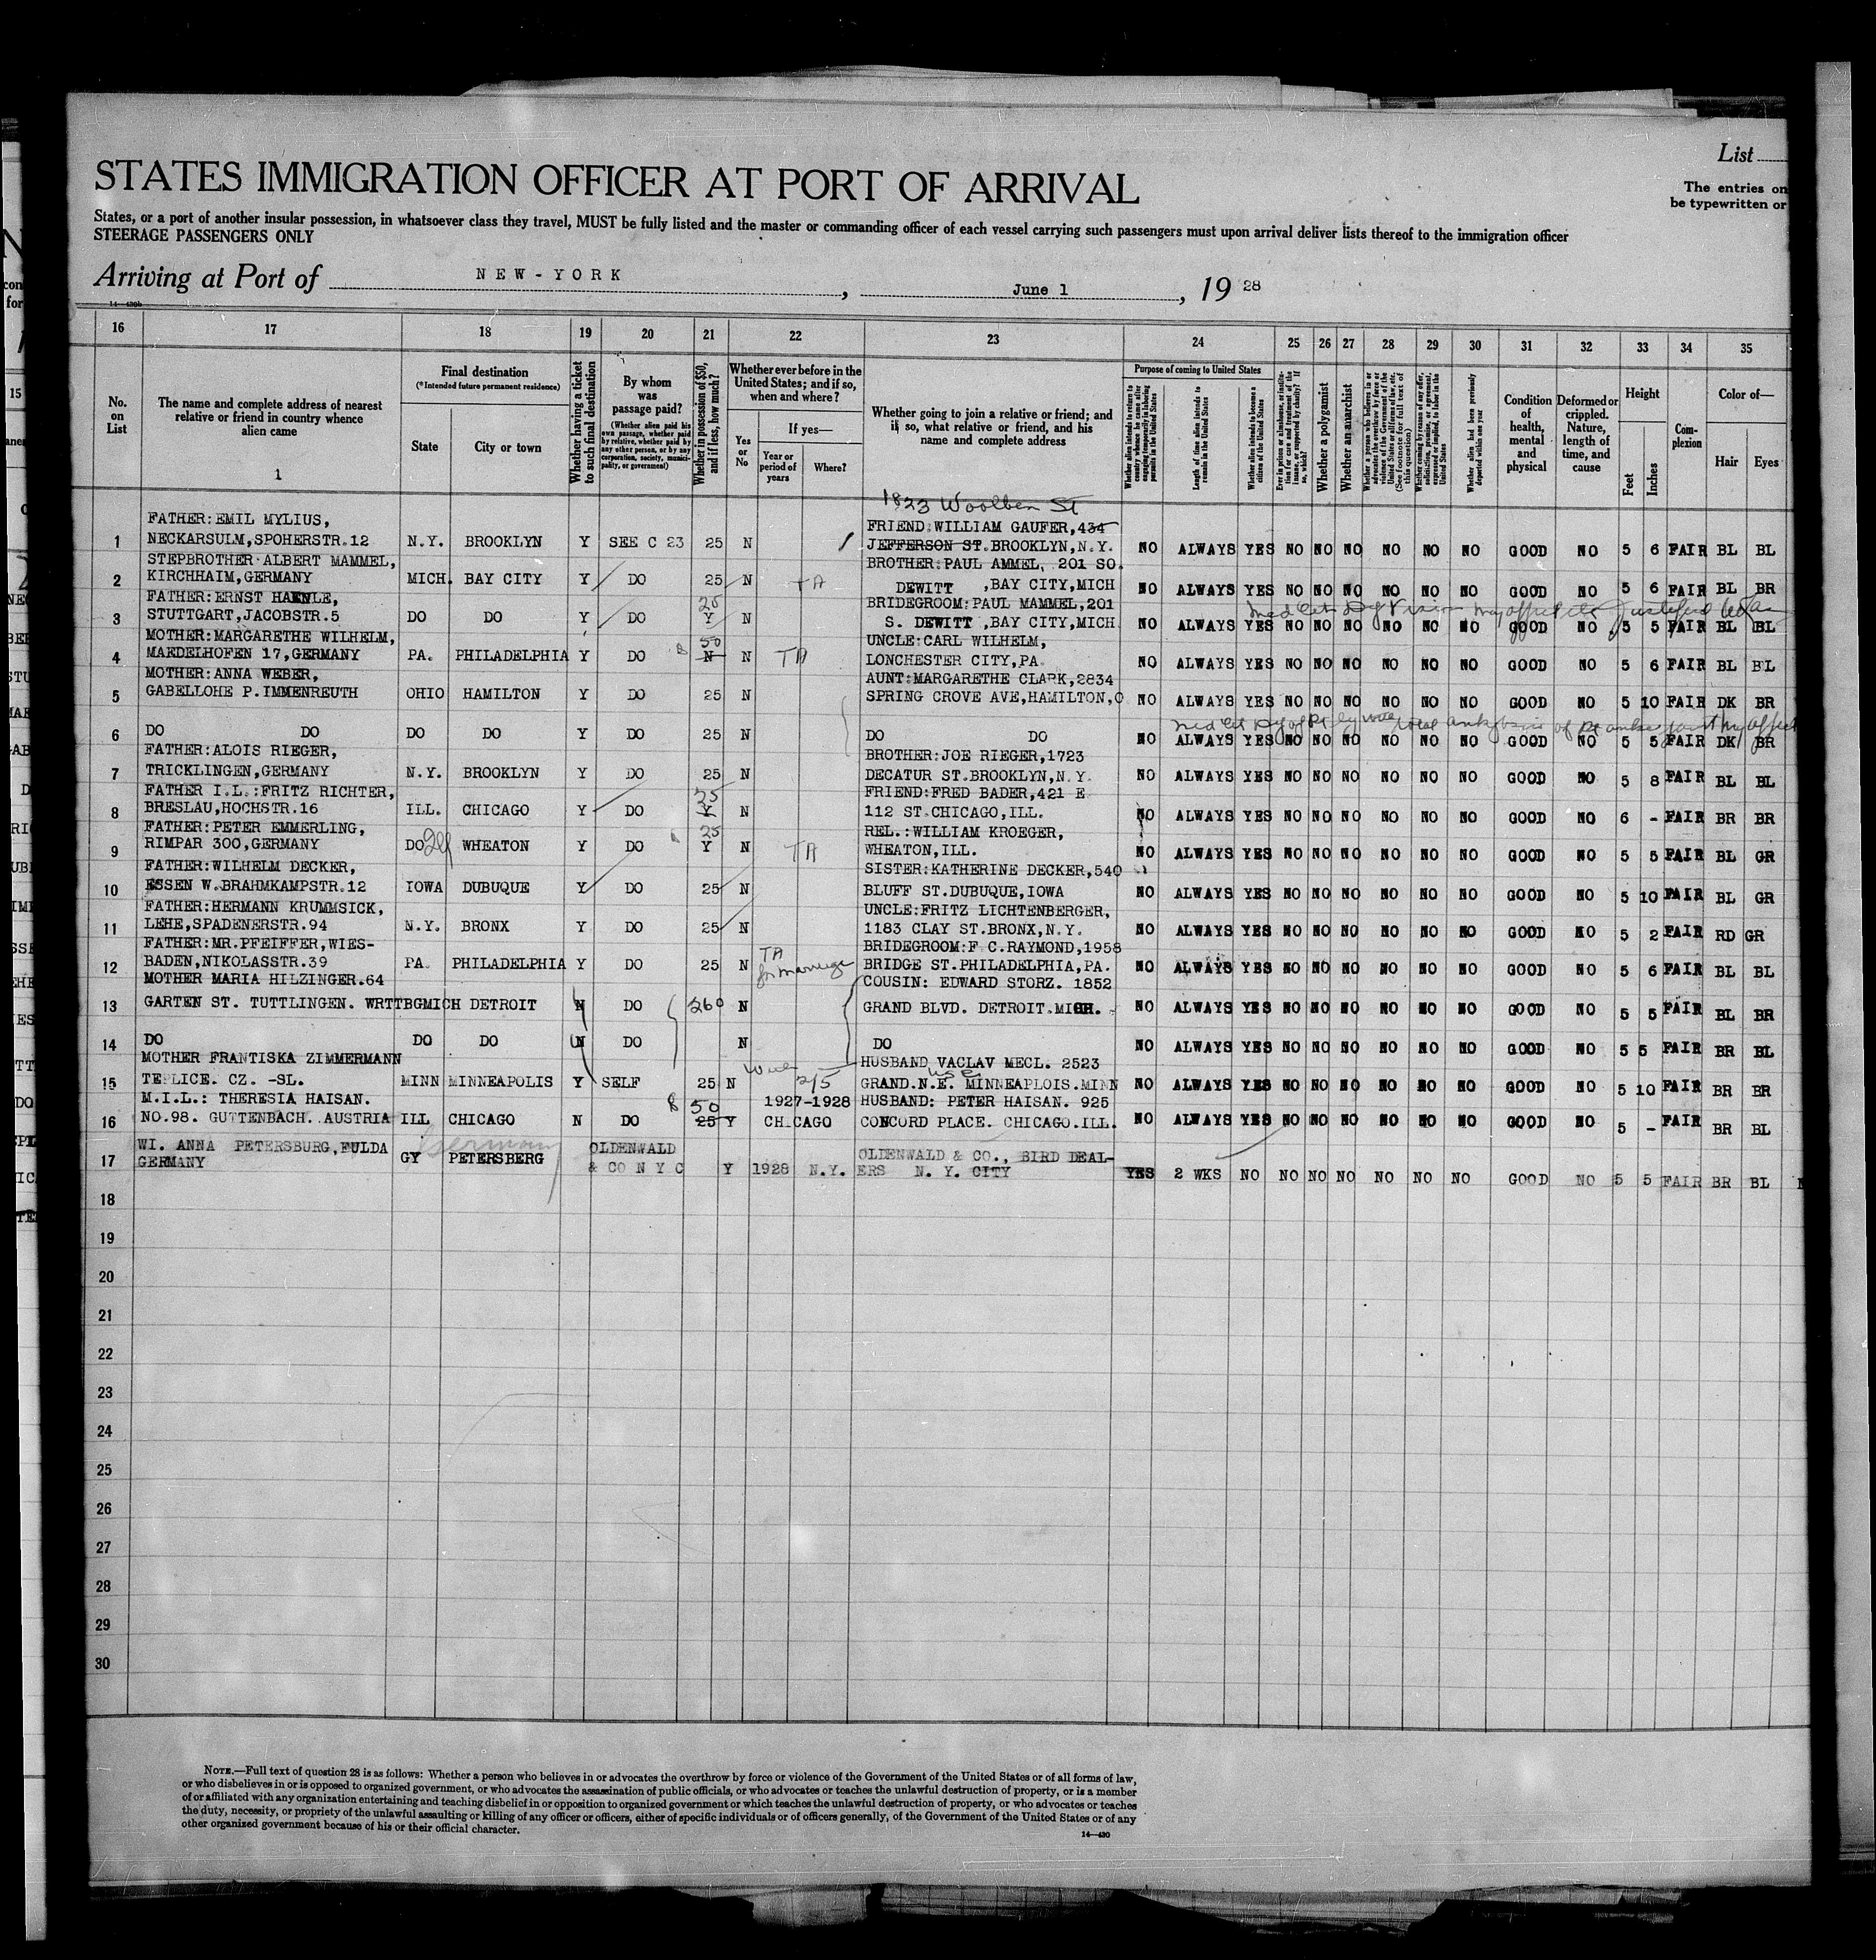 List
STATES IMMIGRATION OFFICER AT PORT OF ARRIVAL
The entries on
be typewritten or
States, or a port of another insular possession, in whatsoever class they travel, MUST be fully listed and the master or commanding officer of each vessel carrying such passengers must upon arrival deliver lists thereof to the immigration officer
STEERAGE PASSENGERS ONLY
Arriving at Port of NEW-YORK, June 1, 1928
16 17 18 19 20 21 22 23 24 25 26 27 28 29 30 31 32 33 34 35
No. on List
The name and complete address of nearest relative or friend in country whence alien came
1
Final destination
(*Intended future permanent residence)
State
City or town
Whether having a ticket to such final destination
By whom was passage paid?
(Whether alien paid his own passage, whether paid by relative, whether paid by any other person, or by any corporation, society, municipality, or government)
Whether in possession of $50, and if less, how much?
Whether ever before in the United States; and if so, when and where?
Yes or No
If yes—
Year or period of years
Where?
Whether going to join a relative or friend; and if so, what relative or friend, and his name and complete address
Purpose of coming to United States
Length of time alien intends to remain in the United States
Whether alien intends to become a citizen of the United States
Whether a polygamist
Whether an anarchist
Condition of health, mental and physical
Deformed or crippled. Nature, length of time, and cause
Height
Feet
Inches
Complexion
Color of—
Hair
Eyes
1823 Woolben St
FATHER:EMIL MYLIUS, FRIEND:WILLIAM GAUFER,434
1 NECKARSULM,SPOHERSTR.12 N.Y. BROOKLYN Y SEE C 23 25 N JEFFERSON ST.BROOKLYN,N.Y. NO ALWAYS YES NO NO NO NO NO NO GOOD NO 5 6 FAIR BL BL
STEPBROTHER ALBERT MAMMEL, BROTHER:PAUL AMMEL, 201 SO.
2 KIRCHHAIM,GERMANY MICH. BAY CITY Y DO 25 N TA DEWITT ,BAY CITY,MICH NO ALWAYS YES NO NO NO NO NO NO GOOD NO 5 6 FAIR BL BR
FATHER:ERNST HAENLE, 25 BRIDEGROOM:PAUL MAMMEL,201
3 STUTTGART,JACOBSTR.5 DO DO Y DO Y N S. DEWITT ,BAY CITY,MICH NO ALWAYS YES NO NO NO NO NO NO GOOD NO 5 5 FAIR BL BL
MOTHER:MARGARETHE WILHELM, 50 UNCLE:CARL WILHELM,
4 MAEDELHOFEN 17,GERMANY PA. PHILADELPHIA Y DO N N TA LONCHESTER CITY,PA NO ALWAYS YES NO NO NO NO NO NO GOOD NO 5 6 FAIR BL BL
MOTHER:ANNA WEBER, AUNT:MARGARETHE CLARK,2834
5 GABELLOHE P.IMMENREUTH OHIO HAMILTON Y DO 25 N SPRING CROVE AVE,HAMILTON,O NO ALWAYS YES NO NO NO NO NO NO GOOD NO 5 10 FAIR DK BR
6 DO DO DO DO Y DO 25 N DO DO NO ALWAYS YES NO NO NO NO NO NO GOOD NO 5 5 FAIR DK BR
FATHER:ALOIS RIEGER, BROTHER:JOE RIEGER,1723
7 TRICKLINGEN,GERMANY N.Y. BROOKLYN Y DO 25 N DECATUR ST.BROOKLYN,N.Y. NO ALWAYS YES NO NO NO NO NO NO GOOD NO 5 8 FAIR BL BL
FATHER I.L.:FRITZ RICHTER, 25 FRIEND:FRED BADER,421 E
8 BRESLAU,HOCHSTR.16 ILL. CHICAGO Y DO Y N 112 ST.CHICAGO,ILL. NO ALWAYS YES NO NO NO NO NO NO GOOD NO 6 - FAIR BR BR
FATHER:PETER EMMERLING, 25 REL.:WILLIAM KROEGER,
9 RIMPAR 300,GERMANY DO Ill WHEATON Y DO Y N TA WHEATON,ILL. NO ALWAYS YES NO NO NO NO NO NO GOOD NO 5 5 FAIR BL GR
FATHER:WILHELM DECKER, SISTER:KATHERINE DECKER,540
10 ESSEN W.BRAHMKAMPSTR.12 IOWA DUBUQUE Y DO 25 N BLUFF ST.DUBUQUE,IOWA NO ALWAYS YES NO NO NO NO NO NO GOOD NO 5 10 FAIR BL GR
FATHER:HERMANN KRUMMSICK, UNCLE:FRITZ LICHTENBERGER,
11 LEHE,SPADENERSTR.94 N.Y. BRONX Y DO 25 N 1183 CLAY ST.BRONX,N.Y. NO ALWAYS YES NO NO NO NO NO NO GOOD NO 5 2 FAIR RD GR
FATHER:MR.PFEIFFER,WIES- TA for marriage BRIDEGROOM:F C.RAYMOND,1958
12 BADEN,NIKOLASSTR.39 PA. PHILADELPHIA Y DO 25 N BRIDGE ST.PHILADELPHIA,PA. NO ALWAYS YES NO NO NO NO NO NO GOOD NO 5 6 FAIR BL BL
MOTHER MARIA HILZINGER.64 COUSIN: EDWARD STORZ. 1852
13 GARTEN ST. TUTTLINGEN. WRTTBG MICH DETROIT N DO 260 N GRAND BLVD. DETROIT.MICH. NO ALWAYS YES NO NO NO NO NO NO GOOD NO 5 5 FAIR BL BR
14 DO DO DO N DO N DO NO ALWAYS YES NO NO NO NO NO NO GOOD NO 5 5 FAIR BR BL
MOTHER FRANTISKA ZIMMERMANN HUSBAND VACLAV MECL. 2523
15 TEPLICE. CZ. -SL. MINN MINNEAPOLIS Y SELF 25 N 2/5 GRAND.N.E. MINNEAPLOIS.MINN NO ALWAYS YES NO NO NO NO NO NO GOOD NO 5 10 FAIR BR BR
M.I.L.: THERESIA HAISAN. 50 1927-1928 HUSBAND: PETER HAISAN. 925
16 NO.98. GUTTENBACH. AUSTRIA ILL CHICAGO N DO 25 Y CHICAGO CONCORD PLACE. CHICAGO.ILL. NO ALWAYS YES NO NO NO NO NO NO GOOD NO 5 - FAIR BR BL
WI. ANNA PETERSBURG,FULDA Germany OLDENWALD OLDENWALD & CO., BIRD DEAL-
17 GERMANY GY PETERSBERG & CO N Y C Y 1928 N.Y. ERS N. Y. CITY YES 2 WKS NO NO NO NO NO NO NO GOOD NO 5 5 FAIR BR BL
18
19
20
21
22
23
24
25
26
27
28
29
30
NOTE.—Full text of question 28 is as follows: Whether a person who believes in or advocates the overthrow by force or violence of the Government of the United States or of all forms of law,
or who disbelieves in or is opposed to organized government, or who advocates the assassination of public officials, or who advocates or teaches the unlawful destruction of property, or is a member
of or affiliated with any organization entertaining and teaching disbelief in or opposition to organized government or which teaches the unlawful destruction of property, or who advocates or teaches
the duty, necessity, or propriety of the unlawful assaulting or killing of any officer or officers, either of specific individuals or of officers generally, of the Government of the United States or of any
other organized government because of his or their official character.
14—430